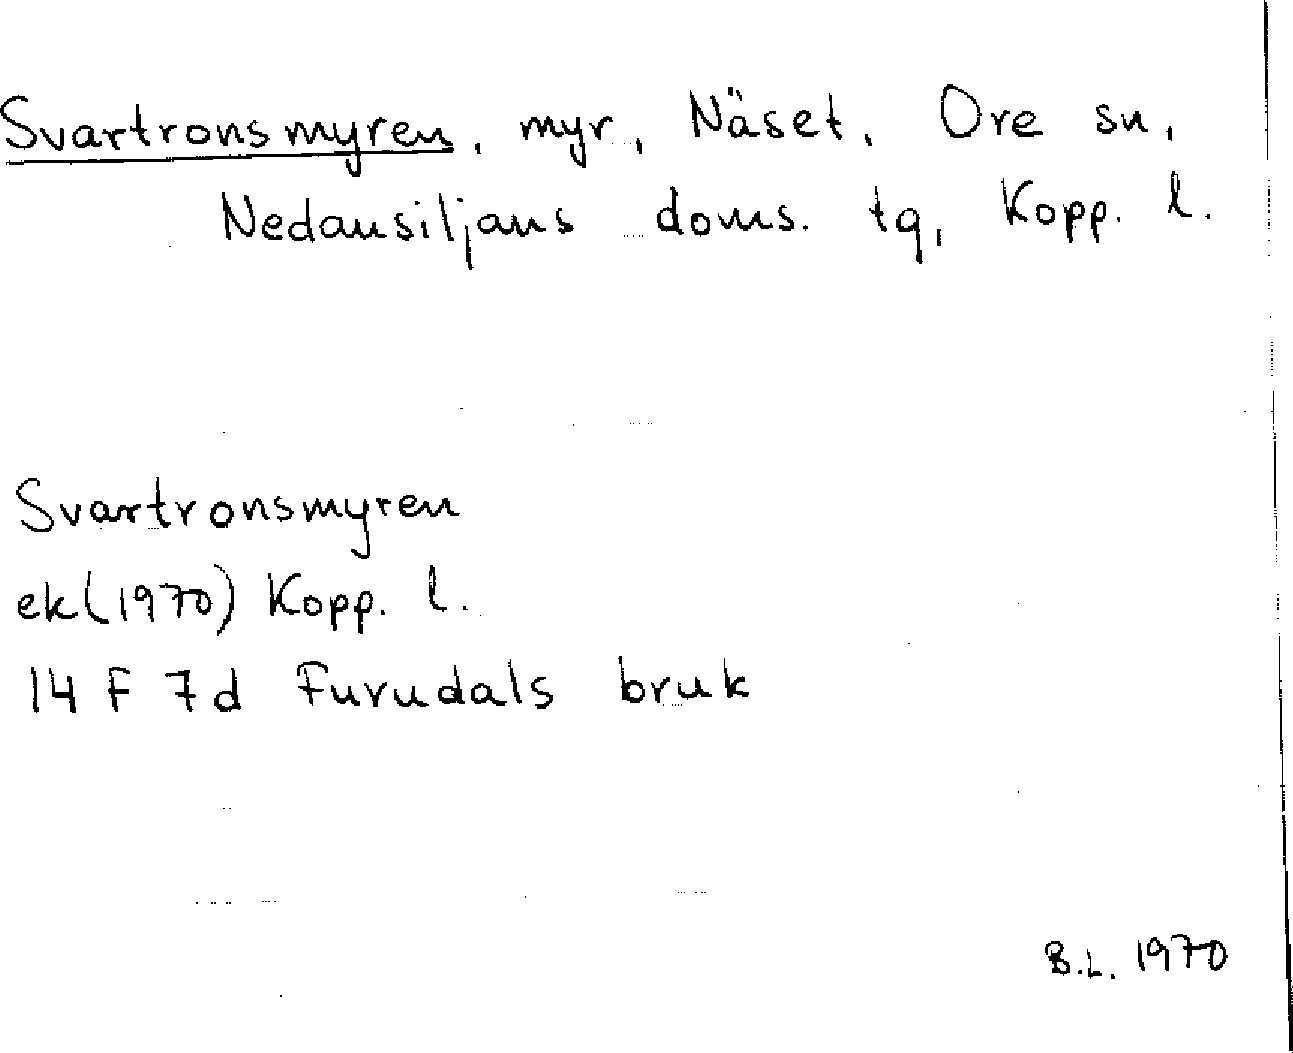 Svartronsmyren, myr, Näset, Ore sn,
Nedansiljans doms. tg, Kopp. l.
Svartronsmyren
ek(1970) Kopp. l.
14 F 7d Furudals bruk
B.L. 1970